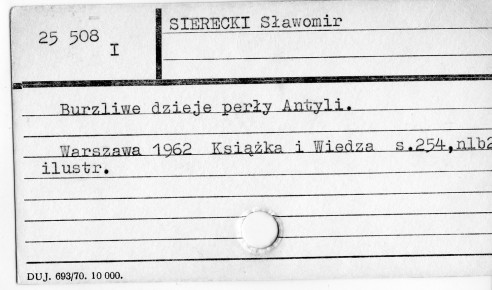 25 508 I
SIERECKI Sławomir
Burzliwe dzieje perły Antyli.
Warszawa 1962 Książka i Wiedza s.254,nlb2
ilustr.
DUJ. 693/70. 10 000.